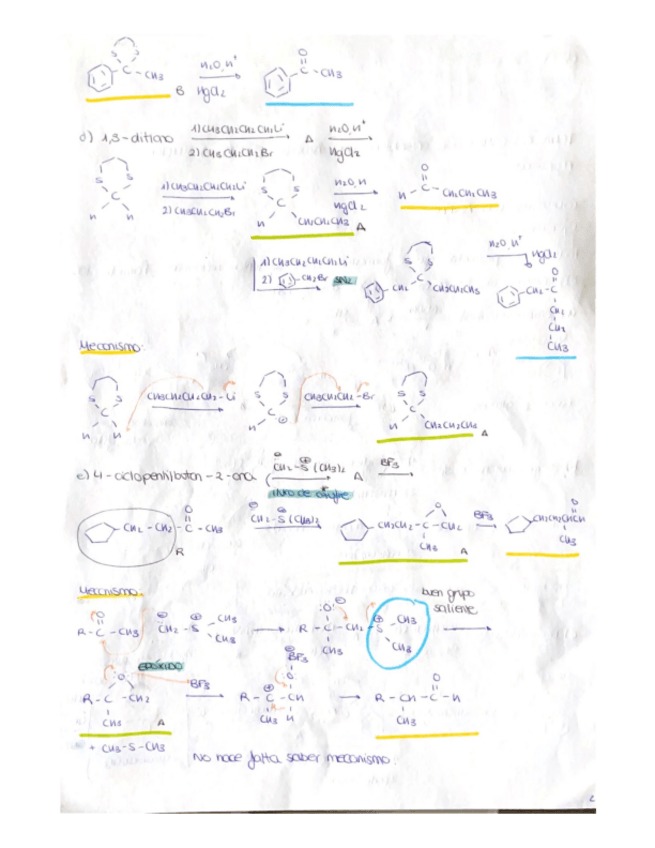 S S
C - CH3
B
H2O, H+
HgCl2
O
C - CH3
d) 1,3-ditiano
1) CH3CH2CH2CH2Li
2) CH3CH2CH2Br
A
H2O, H+
HgCl2
S S
C
H H
1) CH3CH2CH2CH2Li
2) CH3CH2CH2Br
S S
C
H CH2CH2CH3 A
H2O, H
HgCl2
O
H - C - CH2CH2CH3
1) CH3CH2CH2CH2Li
2) -CH2Br SN2
S S
CH2 C CH2CH2CH3
H2O, H+
HgCl2
O
CH2-C
CH2
CH2
CH3
Mecanismo:
S S
C
H H
CH3CH2CH2CH2-Li
S S
C
H ⊖
CH3CH2CH2-Br
S S
C
H CH2CH2CH3 A
e) 4-ciclopentilbutan-2-ona
⊖ ⊕
CH2-S(CH3)2
iluro de azufre
A
BF3
O
CH2 - CH2 - C - CH3
R
⊖ ⊕
CH2-S(CH3)2
O
CH2CH2-C-CH2
CH3 A
BF3
O
CH2CH2CHCH
CH3
Mecanismo.
O
R-C-CH3
⊖ ⊕
CH2-S
CH3
CH3
⊖
:O:
R-C-CH2
CH3
⊕
S
CH3
CH3
buen grupo
saliente
EPÓXIDO
O
R-C-CH2
CH3 A
BF3
⊖
BF3
:O:
⊕
R-C-CH
CH3 H
O
R-CH-C-H
CH3
+ CH3-S-CH3
No hace falta saber mecanismo.